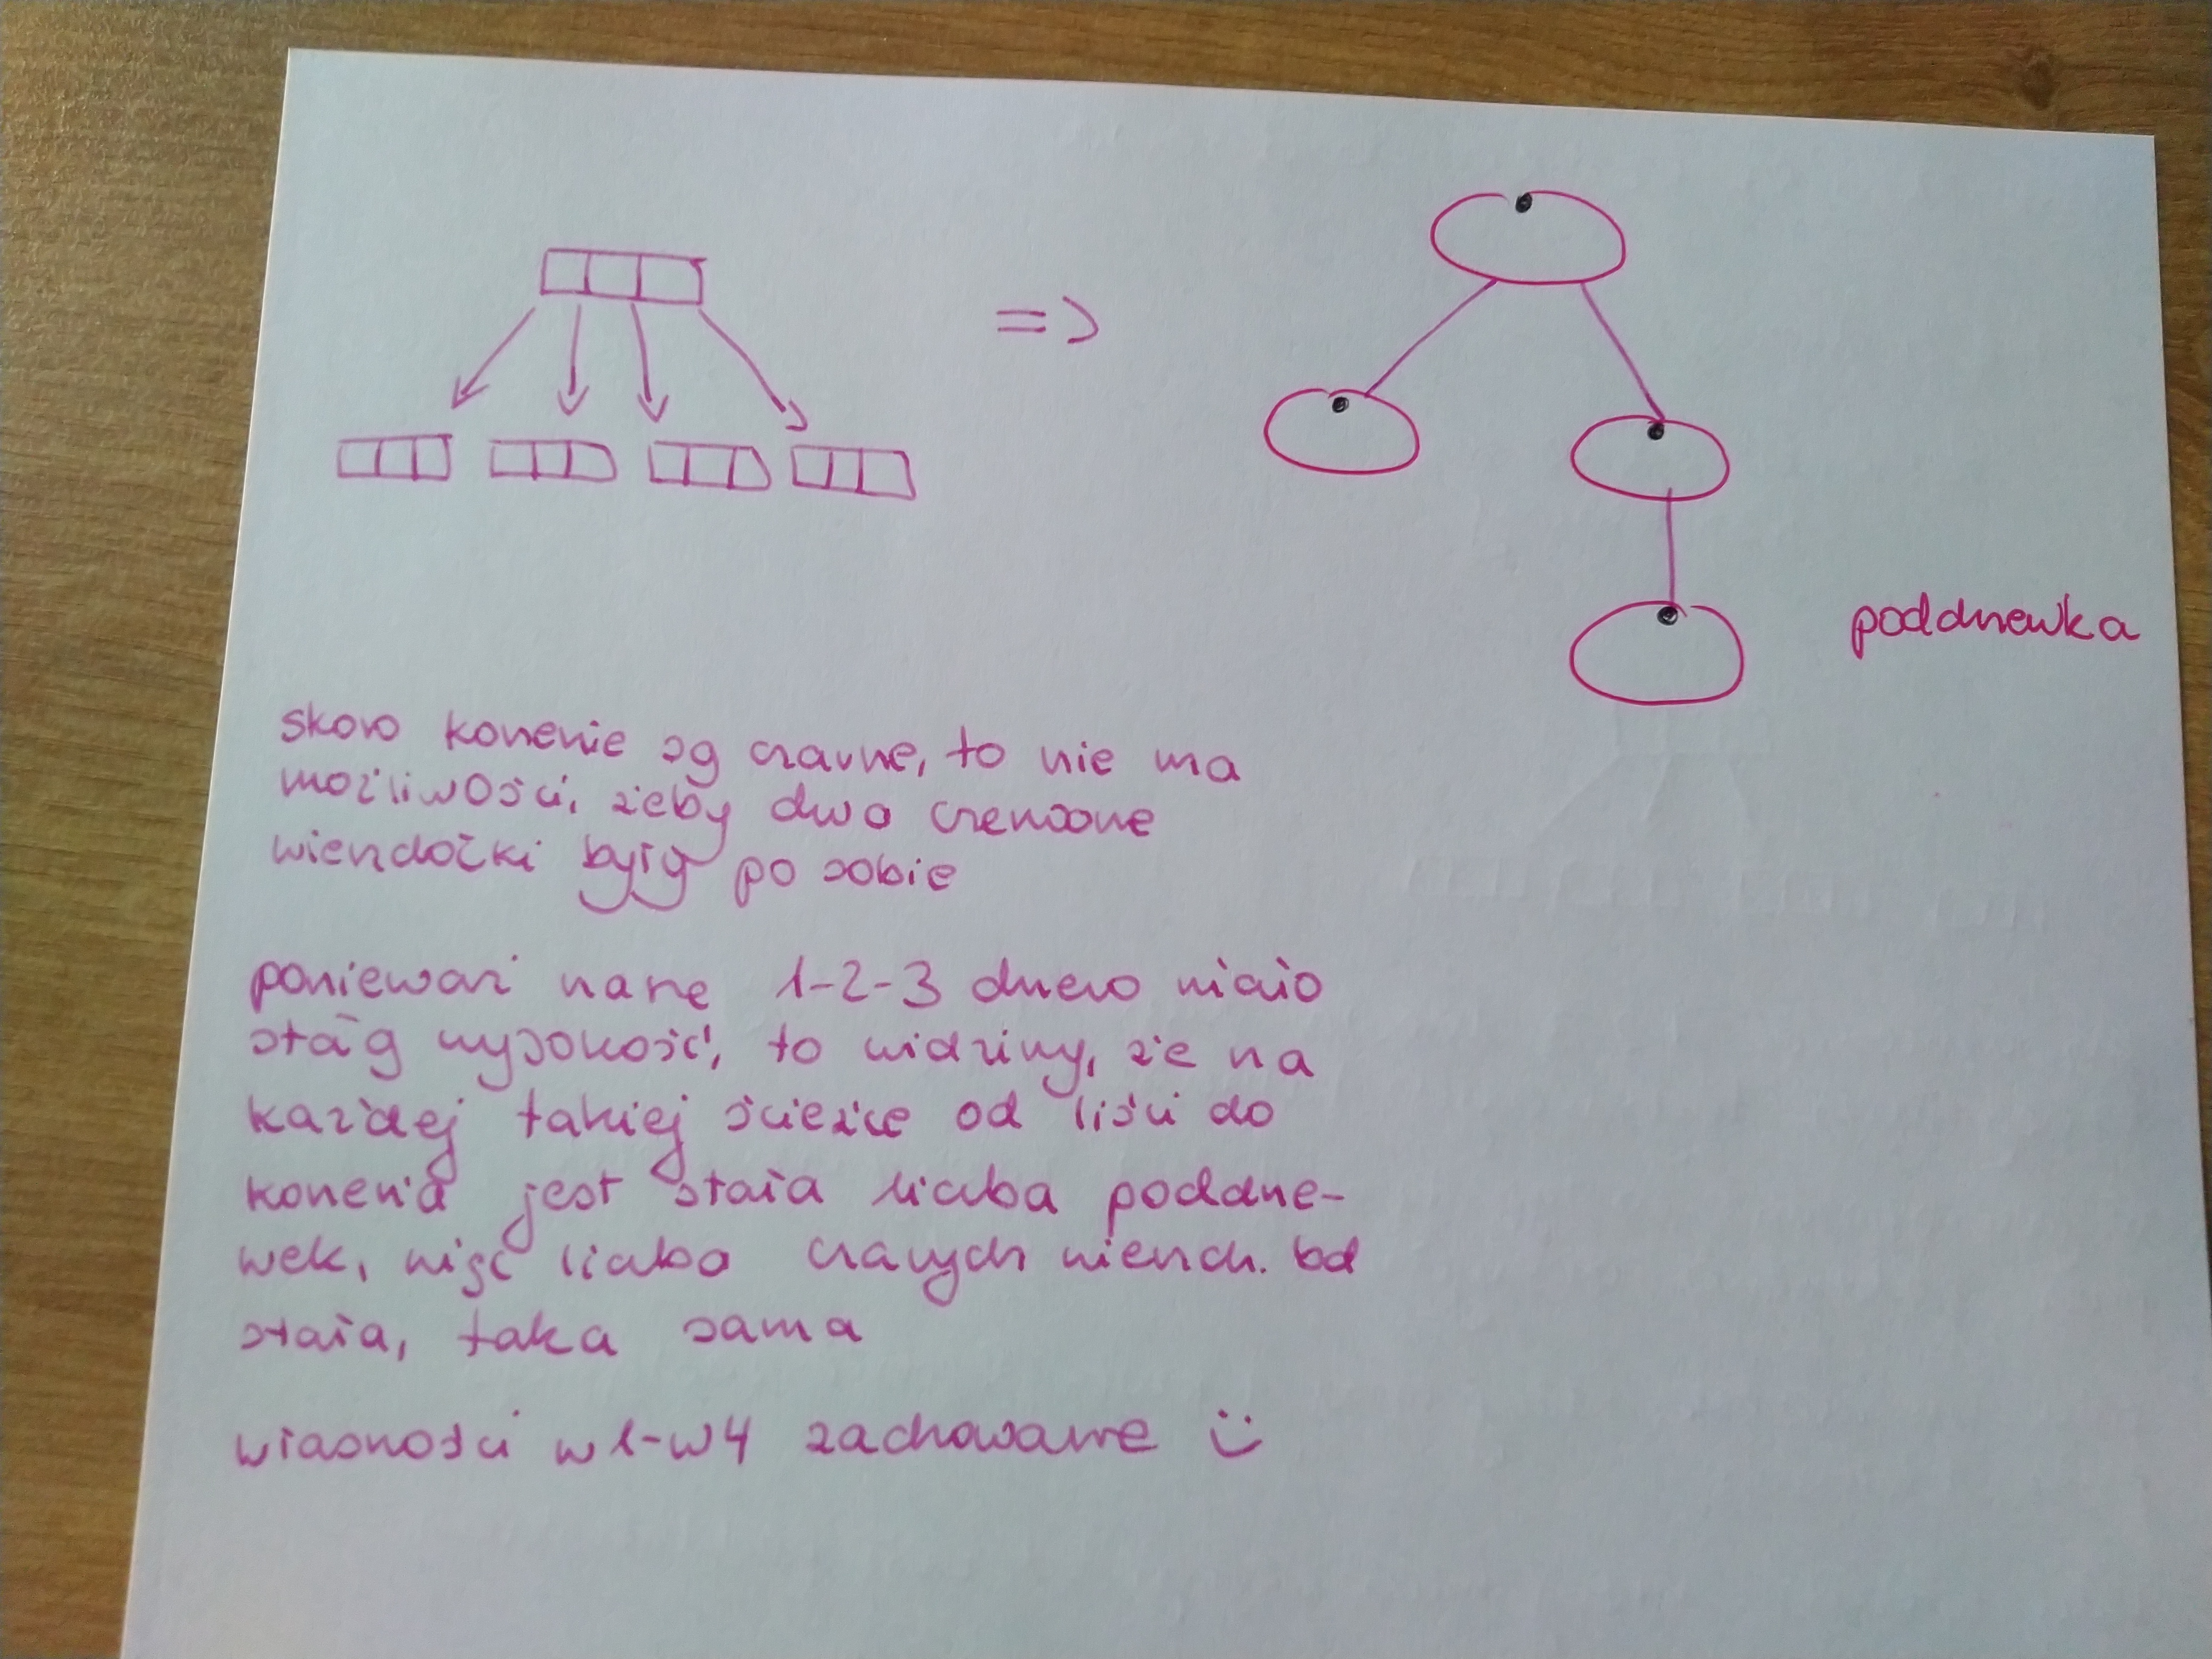 =>
poddrzewka
skoro korzenie są czarne, to nie ma
możliwości, żeby dwa czerwone
wierzchołki były po sobie
ponieważ nasze 1-2-3 drzewo miało
stałą wysokość, to widzimy, że na
każdej takiej ścieżce od liści do
korzenia jest stała liczba poddrze-
wek, więc liczba czarnych wierzch. bd
stała, taka sama
własności w1-w4 zachowane :)